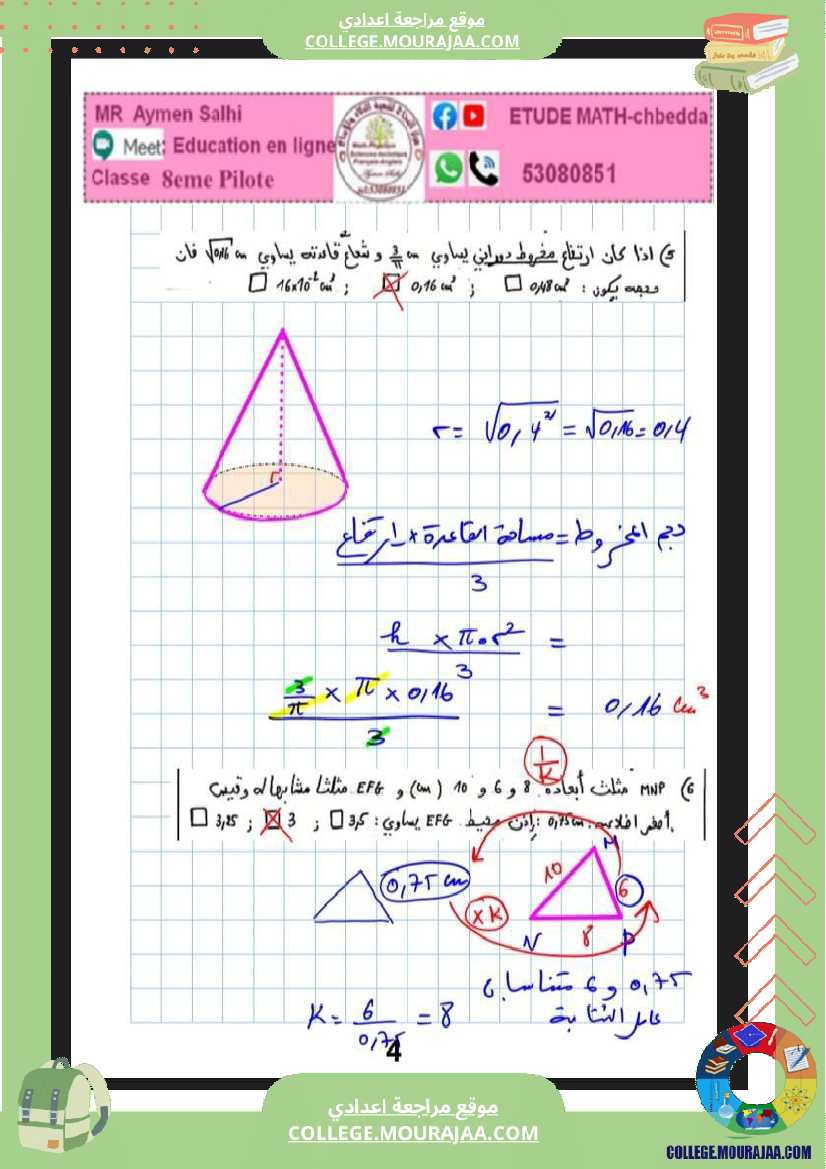 موقع مراجعة اعدادي
COLLEGE.MOURAJAA.COM
MR Aymen Salhi
Meet: Education en ligne
Classe 8eme Pilote
ETUDE MATH-chbedda
53080851
5) اذا كان ارتفاع مخروط دوراني يساوي 3/π cm و شعاع قاعدته يساوي √0,16 cm فان
حجمه يكون : 0,48 cm³ ☐ ; 0,16 cm³ ☒ ; 16x10⁻² cm³ ☐
r
r = √0,4² = √0,16 = 0,4
حجم المخروط = مساحة القاعدة × ارتفاع / 3
= h × π . r² / 3
3/π × π × 0,16 / 3 = 0,16 cm³
1/K
6) MNP مثلث أبعاده 8 و 6 و 10 (cm) و EFG مثلثا مشابها له وقيس
أصغر اضلاعه 0,75 cm. إذن محيط EFG يساوي : 3,5 ☐ ; 3 ☒ ; 3,25 ☐
0,75 cm
x K
M
10
6
N
8
P
0,75 و 6 متناسبان
عامل التشابه
K = 6 / 0,75 = 8
4
موقع مراجعة اعدادي
COLLEGE.MOURAJAA.COM
COLLEGE.MOURAJAA.COM